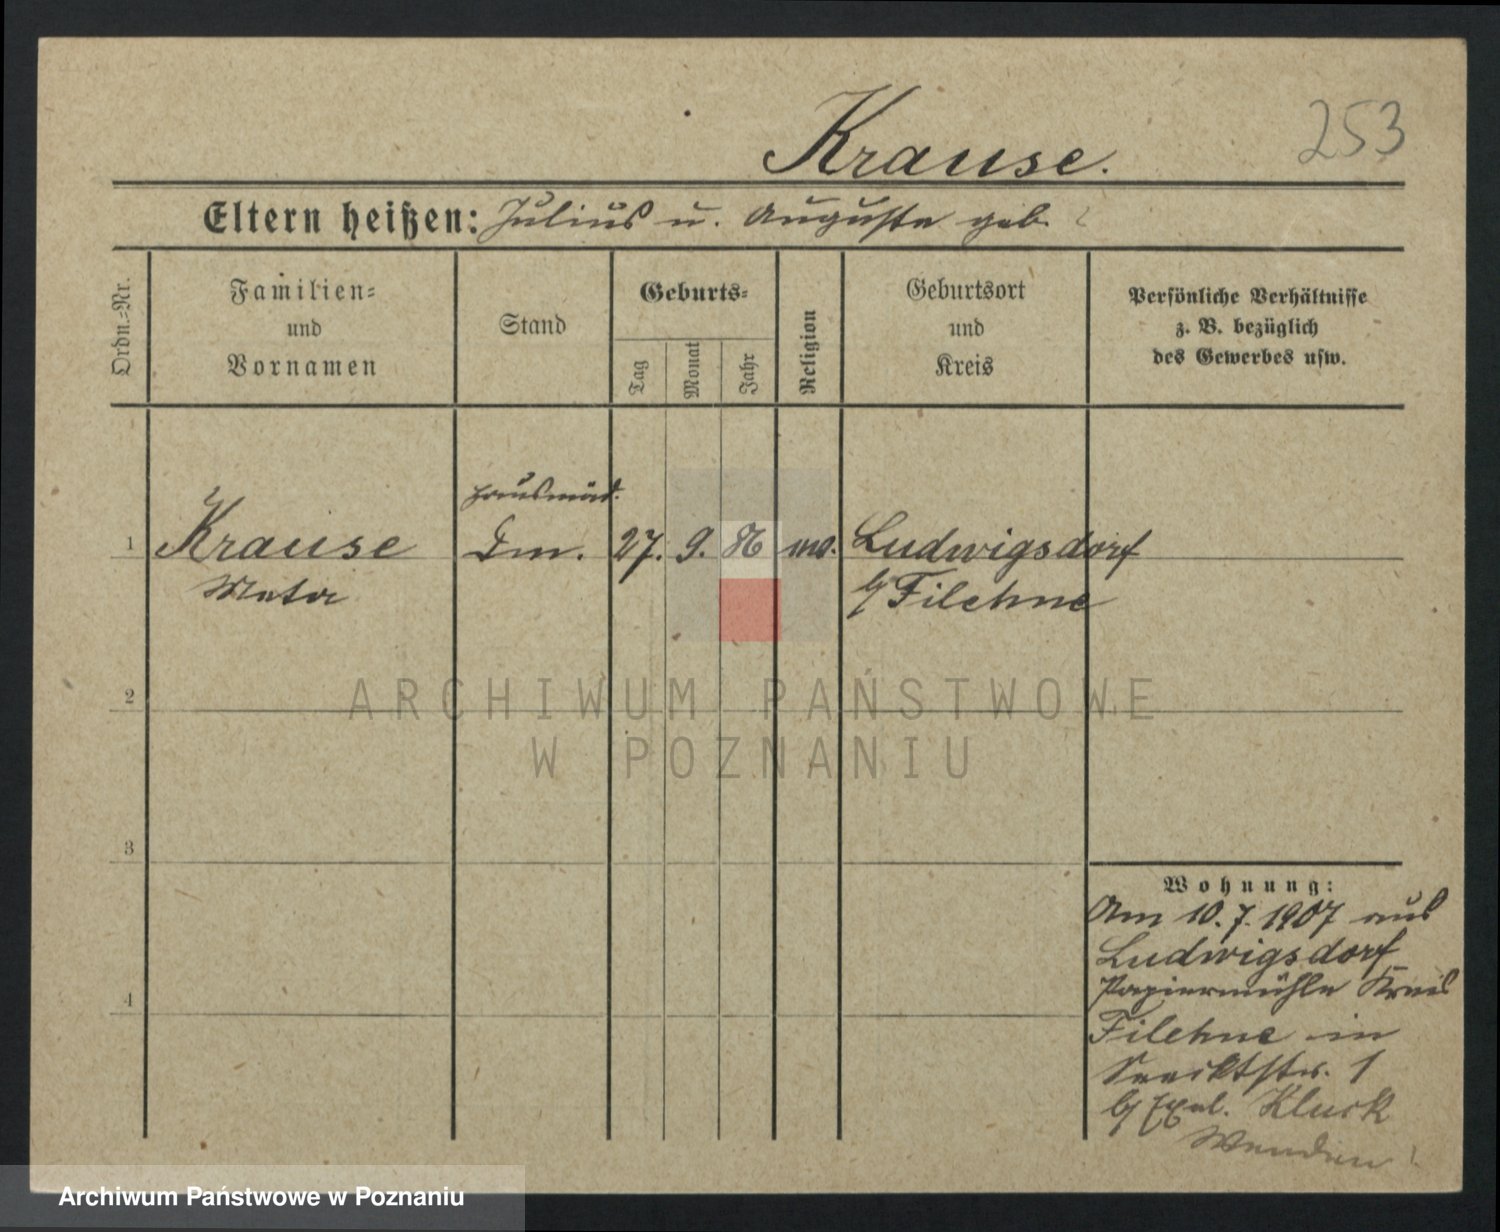 253
Krause.
Eltern heißen: Julius u. Auguste geb. ?
Ordn.-Nr.
Familien-
und
Vornamen
Stand
Geburts-
Tag
Monat
Jahr
Religion
Geburtsort
und
Kreis
Persönliche Verhältnisse
z. B. bezüglich
des Gewerbes usw.
Hausmäd.
1 Krause 27. 9. 86 Ludwigsdorf
Meta b/ Filehne
ARCHIWUM PAŃSTWOWE
W POZNANIU
2
3
4
Wohnung:
Am 10.7.1907 aus
Ludwigsdorf
Papiermühle Kreis
Filehne in
1
b/ Kluck
Archiwum Państwowe w Poznaniu